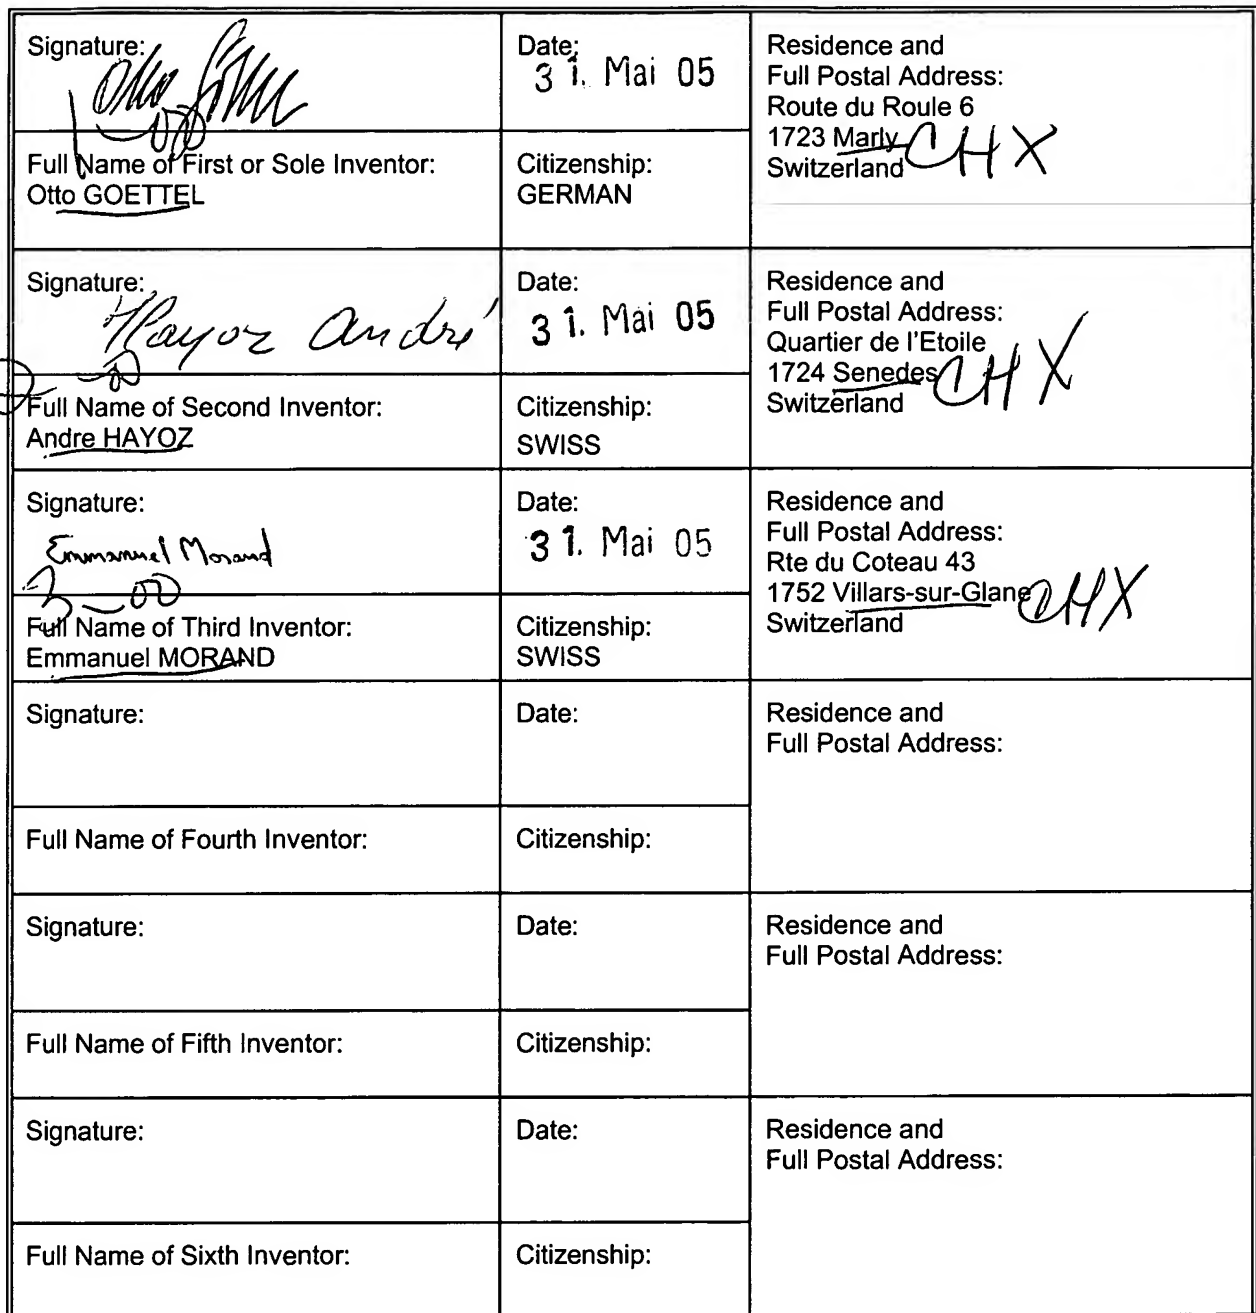 Signature:
Otto
1-00
Date:
31. Mai 05
Residence and
Full Postal Address:
Route du Roule 6
1723 Marly CHX
Switzerland
Full Name of First or Sole Inventor:
Otto GOETTEL
Citizenship:
GERMAN
Signature:
Hayoz André
2-00
Date:
31. Mai 05
Residence and
Full Postal Address:
Quartier de l'Etoile
1724 Senedes CHX
Switzerland
Full Name of Second Inventor:
Andre HAYOZ
Citizenship:
SWISS
Signature:
Emmanuel Morand
3-00
Date:
31. Mai 05
Residence and
Full Postal Address:
Rte du Coteau 43
1752 Villars-sur-Glane CHX
Switzerland
Full Name of Third Inventor:
Emmanuel MORAND
Citizenship:
SWISS
Signature:
Date:
Residence and
Full Postal Address:
Full Name of Fourth Inventor:
Citizenship:
Signature:
Date:
Residence and
Full Postal Address:
Full Name of Fifth Inventor:
Citizenship:
Signature:
Date:
Residence and
Full Postal Address:
Full Name of Sixth Inventor:
Citizenship: